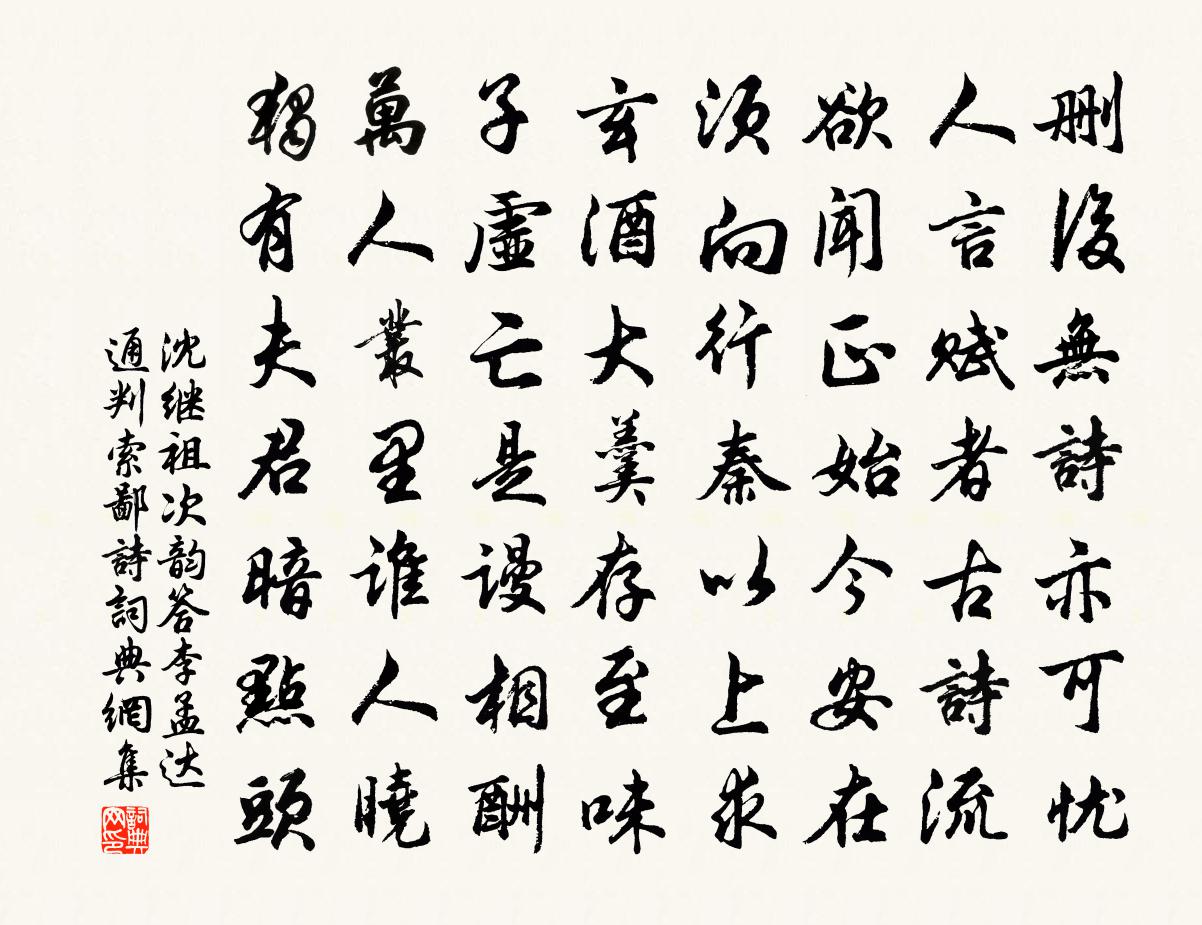 删後無詩亦可忧
人言赋者古詩流
欲闻正始今安在
須向行秦以上求
玄酒大羹存至味
子虛亡是谩相酬
萬人叢里谁人曉
独有夫君暗點頭
沈继祖次韵答李孟达
通判索鄙詩詞典網集
詞典網印